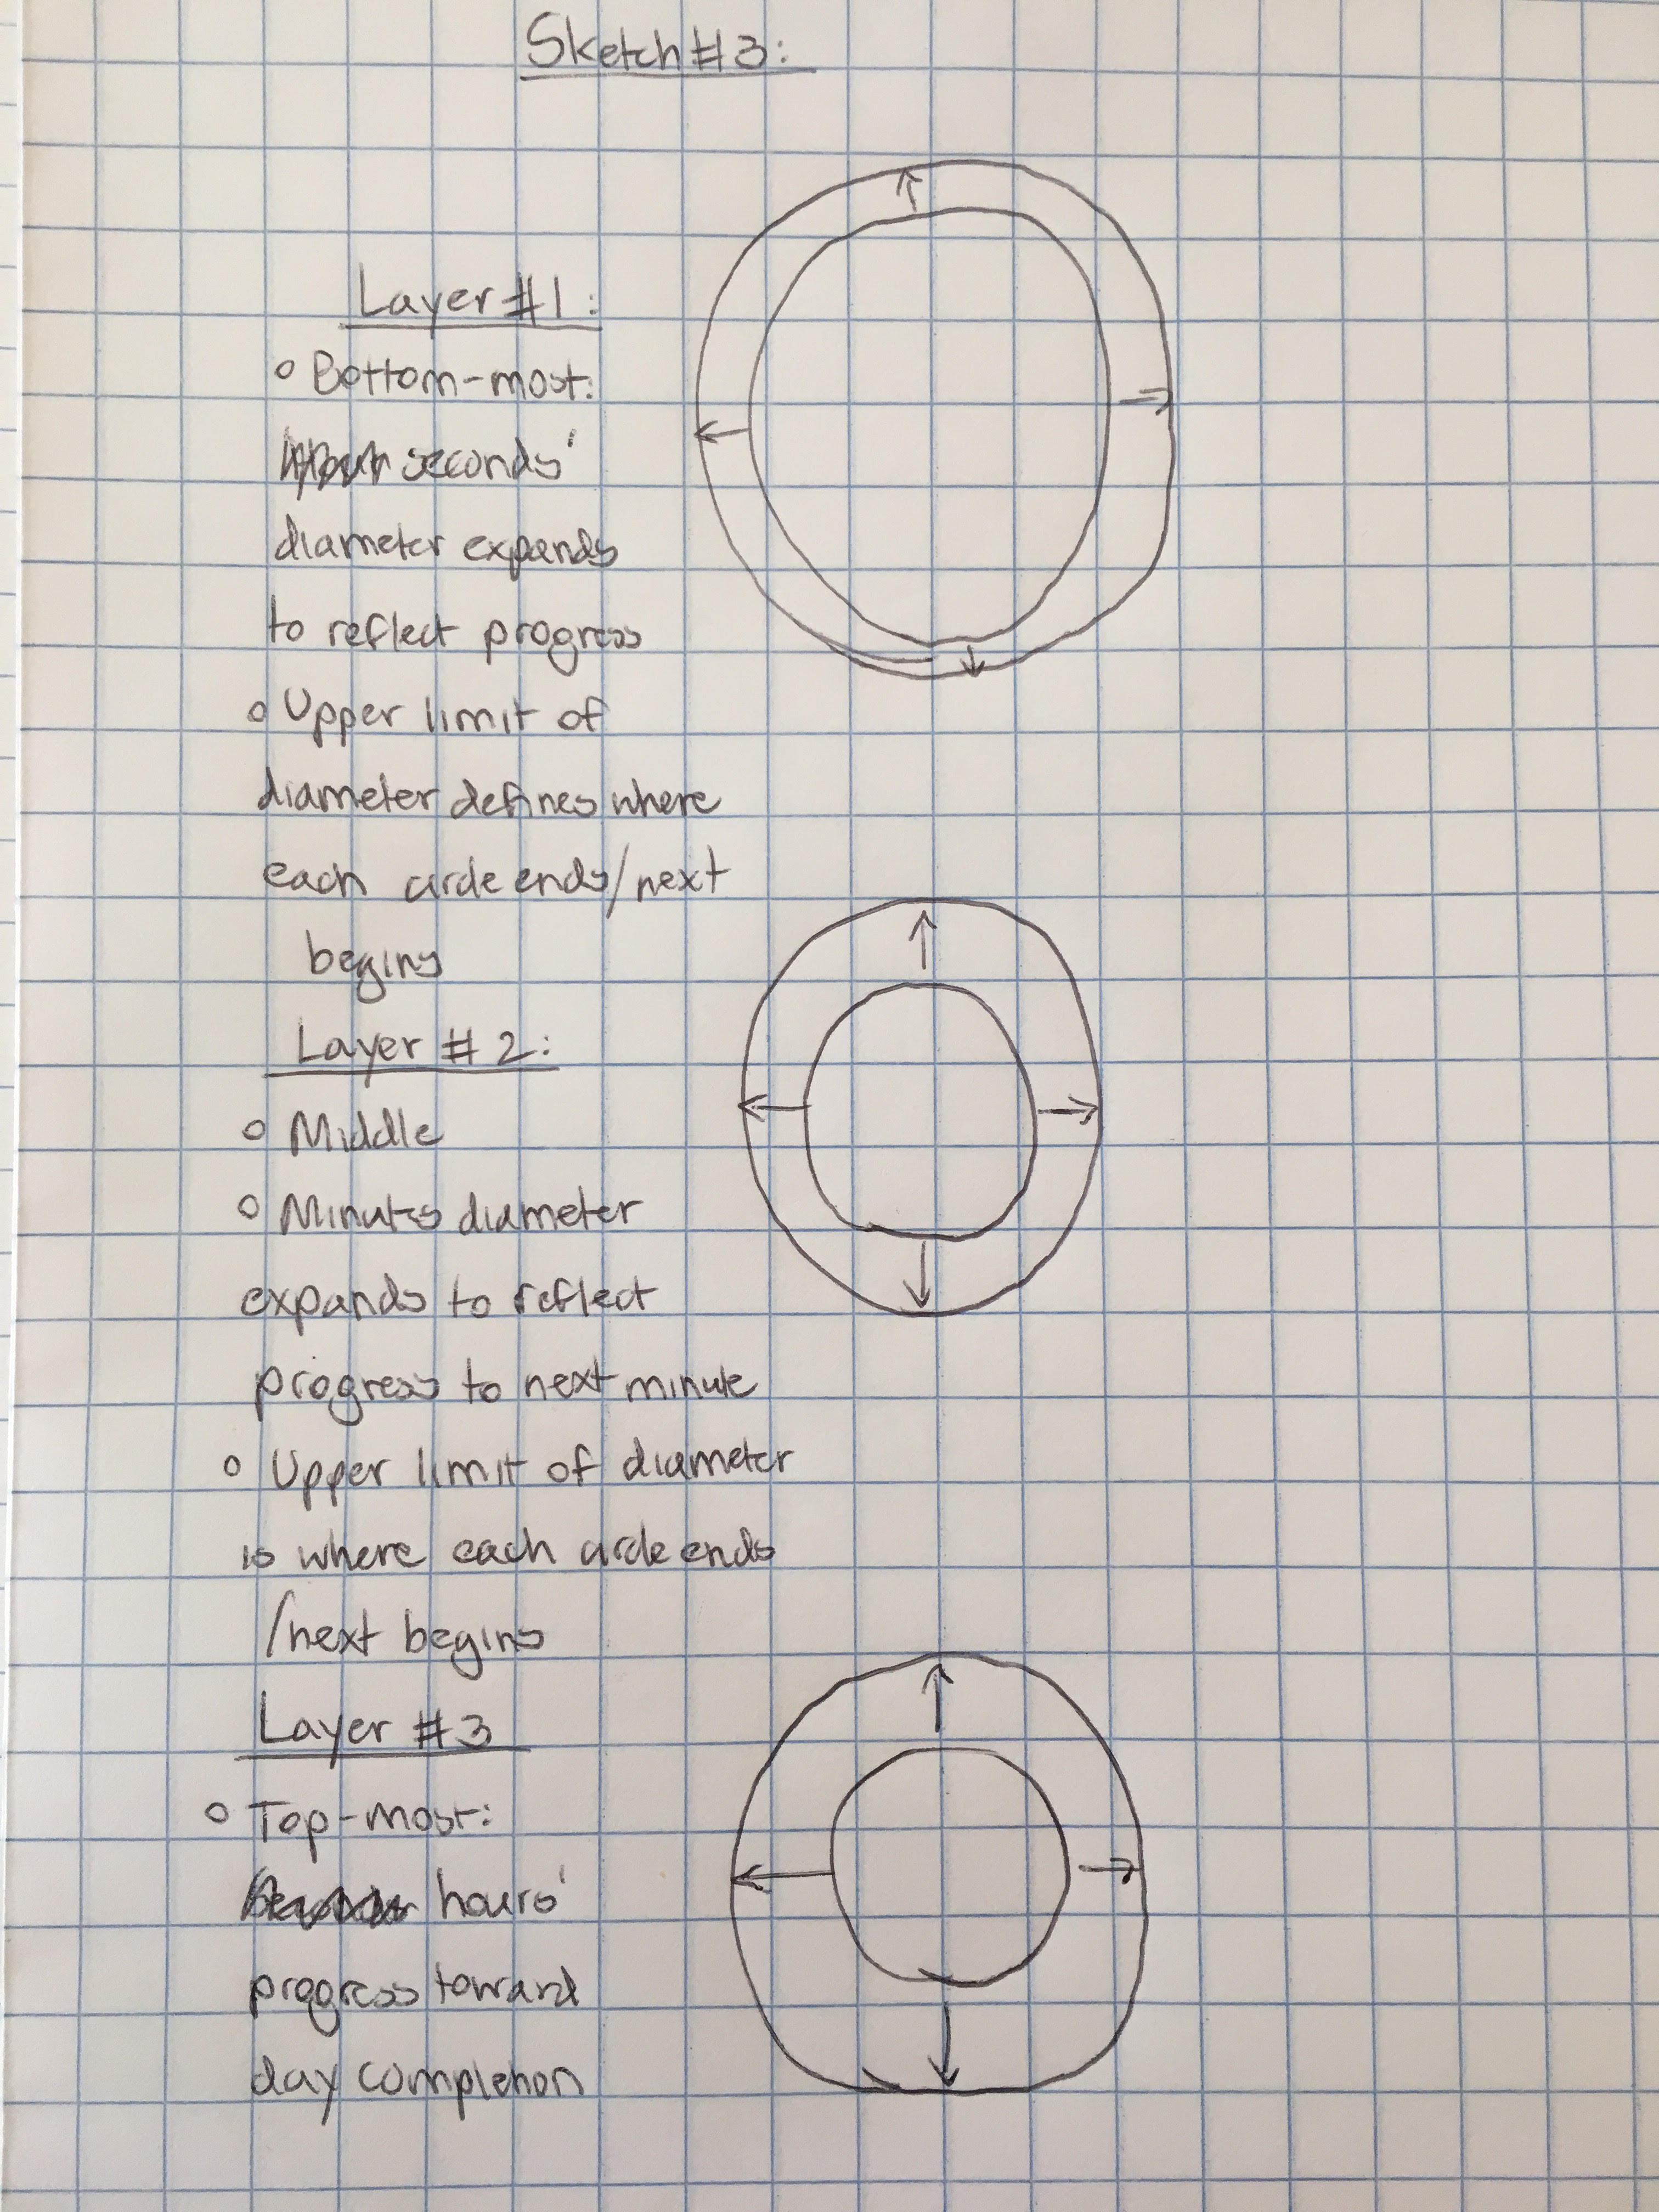 Sketch #3:
Layer #1:
o Bottom-most:
seconds'
diameter expands
to reflect progress
o Upper limit of
diameter defines where
each circle ends/next
begins
Layer #2:
o Middle
o Minutes diameter
expands to reflect
progress to next minute
o Upper limit of diameter
is where each circle ends
/next begins
Layer #3
o Top-most:
hours'
progress toward
day completion